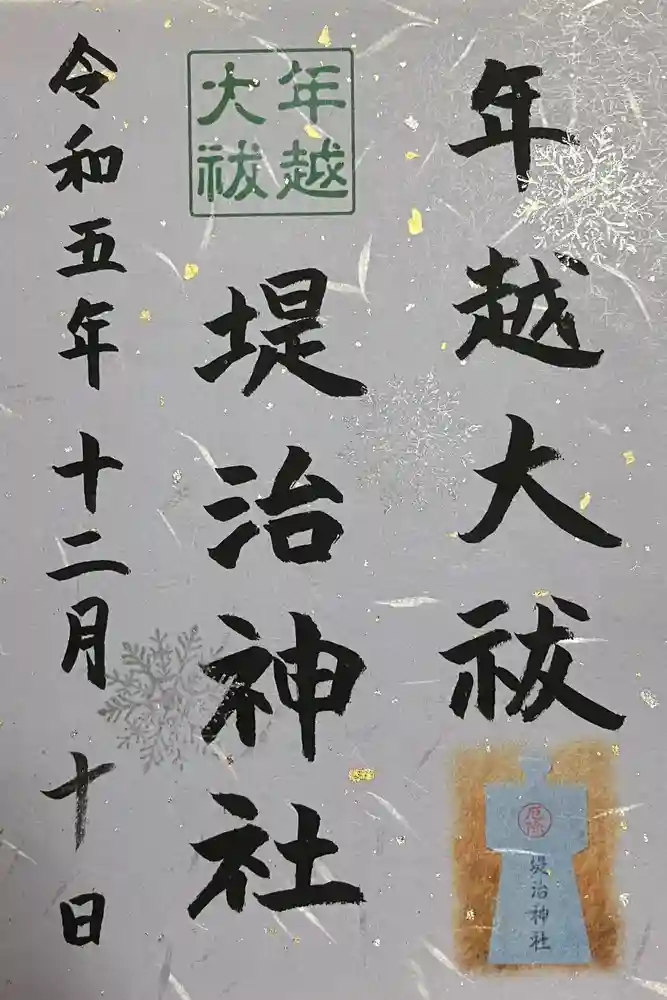 年越大祓
年越
大祓
堤治神社
令和五年十二月十日
厄除
堤治神社